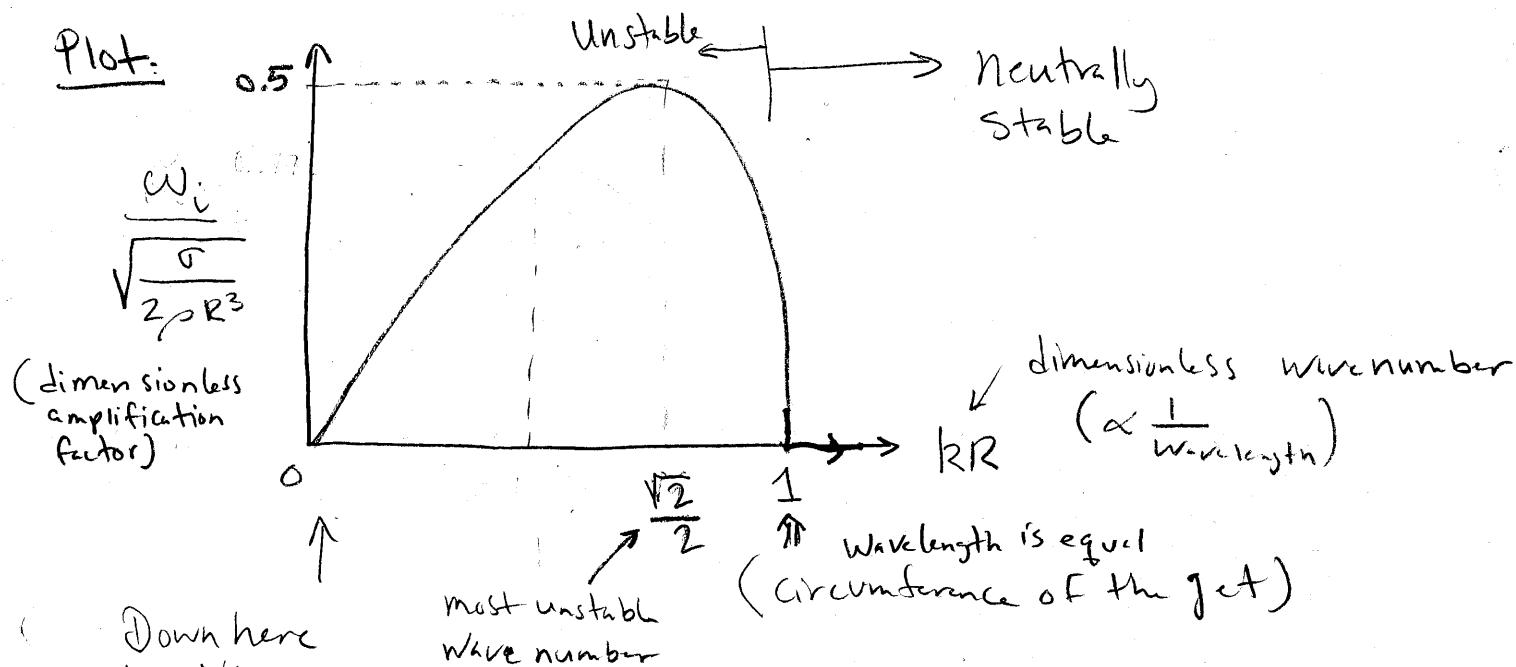 Plot:
Unstable
neutrally
stable
0.5
ωi
√σ/2ρR³
(dimensionless
amplification
factor)
0
√2/2
1
kR
dimensionless wavenumber
(∝ 1/wavelength)
wavelength is equal
(circumference of the get)
most unstable
wave number
Down here